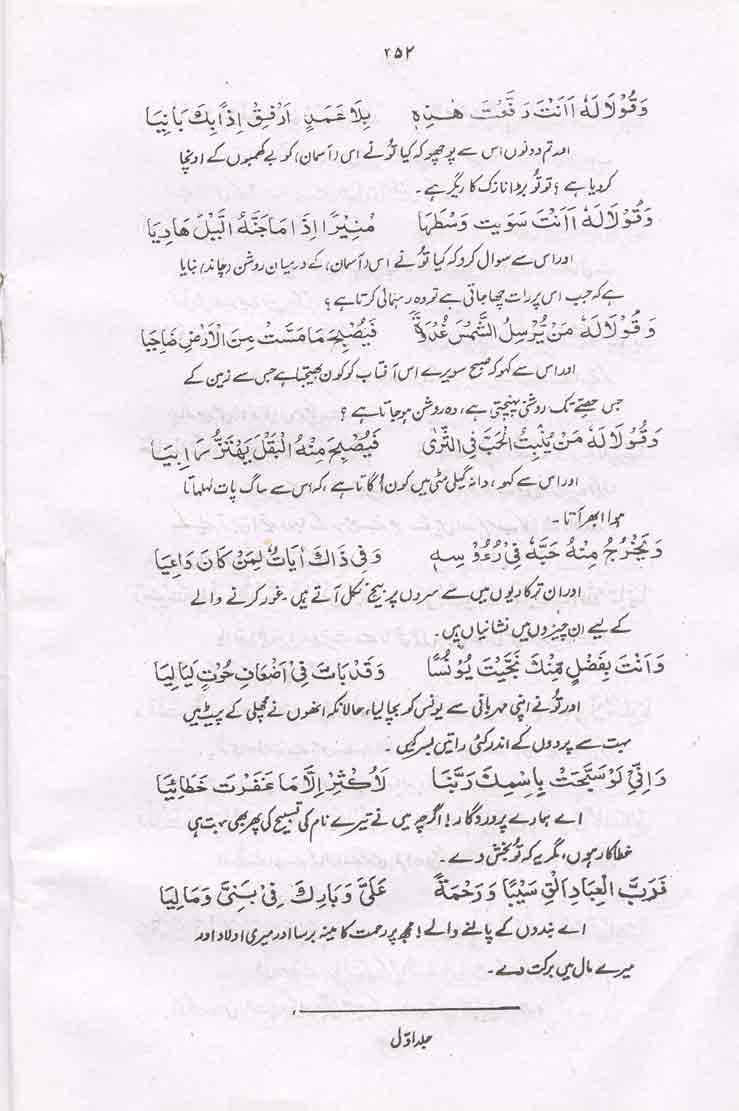 ۲۵۲
وَقُوْلَا لَهٗ اَاَنْتَ رَفَّعْتَ هٰذِهٖ بِلَا عَمَدٍ اَرْفِقْ اِذًا بِكَ بَانِيَا
اور تم دونوں اس سے پوچھو کہ کیا تُو نے اس (آسمان) کو بے کھمبوں کے اونچا
کر دیا ہے؟ تو تُو بڑا نازک کاریگر ہے۔
وَقُوْلَا لَهٗ اَاَنْتَ سَوَّيْتَ وَسْطَهَا مُنِيْرًا اِذَا مَا جَنَّهُ الَّيْلُ هَادِيَا
اور اس سے سوال کرو کہ کیا تُو نے اس (آسمان) کے درمیان روشن (چاند) بنایا
ہے کہ جب اس پر رات چھا جاتی ہے تو وہ رہنمائی کرتا ہے؟
وَقُوْلَا لَهٗ مَنْ يُّرْسِلُ الشَّمْسَ غُدْوَةً فَيُصْبِحُ مَا مَسَّتْ مِنَ الْاَرْضِ ضَاحِيَا
اور اس سے کہو کہ صبح سویرے اس آفتاب کو کون بھیجتا ہے جس سے زمین کے
جس حصّے تک روشنی پہنچتی ہے، وہ روشن ہو جاتا ہے؟
وَقُوْلَا لَهٗ مَنْ يُنْبِتُ الْحَبَّ فِي الثَّرٰى فَيُصْبِحَ مِنْهُ الْبَقْلُ يَهْتَزُّ رَابِيَا
اور اس سے کہو، دانہ گیلی مٹی میں کون اُگاتا ہے، کہ اس سے ساگ پات لہلہاتا
ہوا ابھر آتا۔
وَيَخْرُجُ مِنْهُ حَبُّهٗ فِيْ رُءُوْسِهٖ وَفِيْ ذَاكَ اٰيَاتٌ لِمَنْ كَانَ وَاعِيَا
اور ان ترکاریوں میں سے سروں پر بیج نکل آتے ہیں۔ غور کرنے والے
کے لیے ان چیزوں میں نشانیاں ہیں۔
وَاَنْتَ بِفَضْلٍ مِّنْكَ نَجَّيْتَ يُوْنُسًا وَقَدْ بَاتَ فِيْ اَضْعَافِ حُوْتٍ لَيَالِيَا
اور تُو نے اپنی مہربانی سے یونس کو بچا لیا، حالانکہ انھوں نے مچھلی کے پیٹ میں
بہت سے پردوں کے اندر کئی راتیں بسر کیں۔
وَاِنِّيْ لَوْ سَبَّحْتُ بِاسْمِكَ رَبَّنَا لَاُكْثِرُ اِلَّا مَا غَفَرْتَ خَطَائِيَا
اے ہمارے پروردگار! اگرچہ میں نے تیرے نام کی تسبیح کی پھر بھی بہت ہی
خطا کار ہوں، مگر یہ کہ تُو بخش دے۔
فَرَبَّ الْعِبَادِ اَلْقِ سَيْبًا وَرَحْمَةً عَلَيَّ وَبَارِكْ فِيْ بَنِيَّ وَمَالِيَا
اے بندوں کے پالنے والے! مجھ پر رحمت کا مینہ برسا اور میری اولاد اور
میرے مال میں برکت دے۔
جلد اوّل